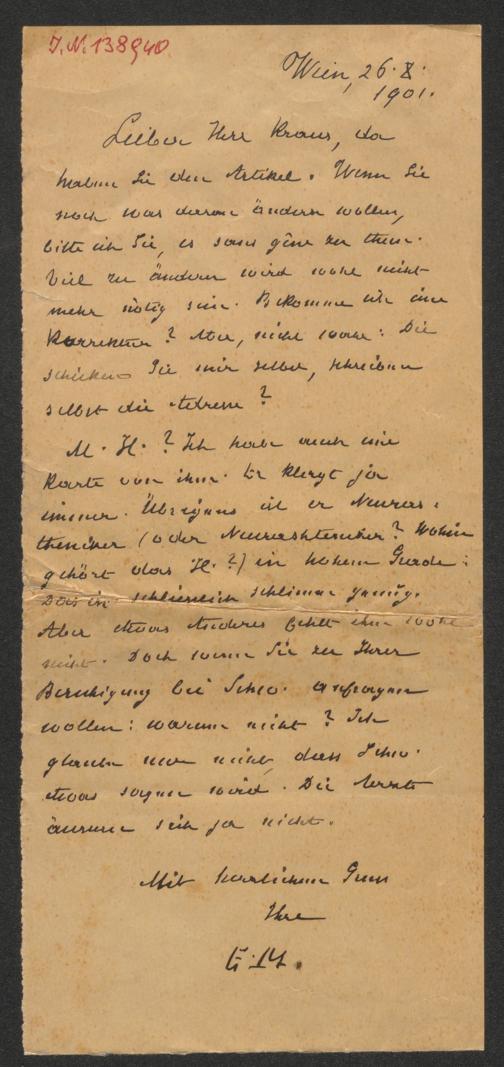 J.N. 138940
Wien, 26. X.
1901.
Lieber Herr Kraus, da
haben Sie den Artikel. Wenn Sie
noch was daran ändern wollen,
bitte ich Sie, es sans gêne zu thun.
Viel zu ändern wird wohl nicht
mehr nötig sein. Bekomme ich eine
Korrektur? Aber, nicht wahr: Die
schicken Sie mir selber, schreiben
selbst die Adresse?
M. H.? Ich habe auch eine
Karte von ihm. Er klagt ja
immer. Übrigens ist er Neuras-
theniker (oder Neurashteniker? Wohin
gehört das H.?) in hohem Grade:
Das ist schliesslich schlimm genug.
Aber etwas Anderes fehlt ihm wohl
nicht. Doch wenn Sie zu Ihrer
Beruhigung bei Schw. anfragen
wollen: warum nicht? Ich
glaube nur nicht, dass Schw.
etwas sagen wird. Die Aerzte
äussern sich ja nicht.
Mit herzlichem Gruss
Ihr